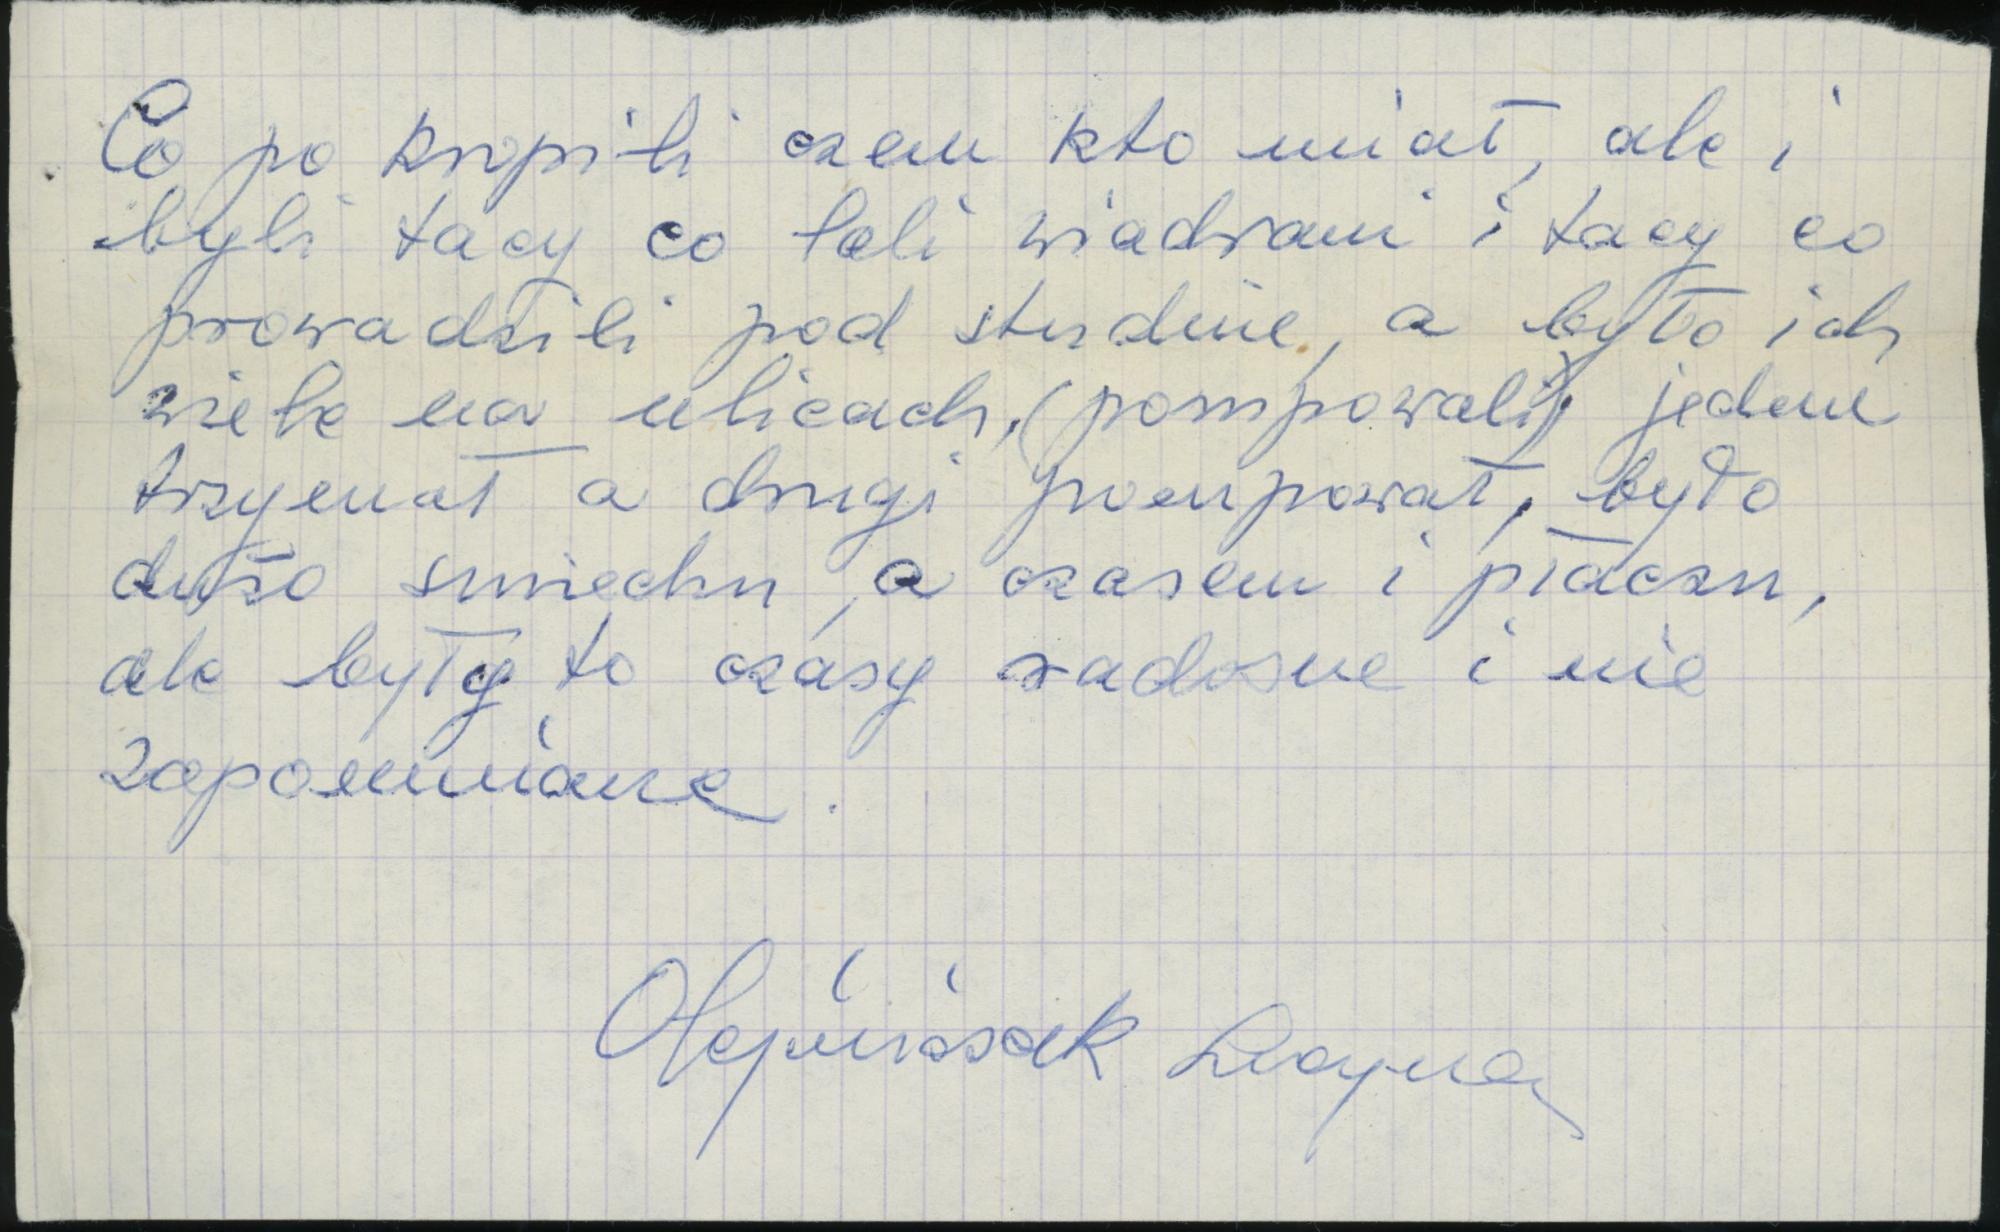 Co po kropili czem kto miał, ale i
byli tacy co leli wiadrami i tacy co
prowadzili pod studnie, a było ich
wiele na ulicach, (pompowali) jeden
trzymał a drugi pompował, było
dużo smiechu, a czasem i płaczu,
ale były to czasy radosne i nie
zapomniane.
Olejniczak Lucyna